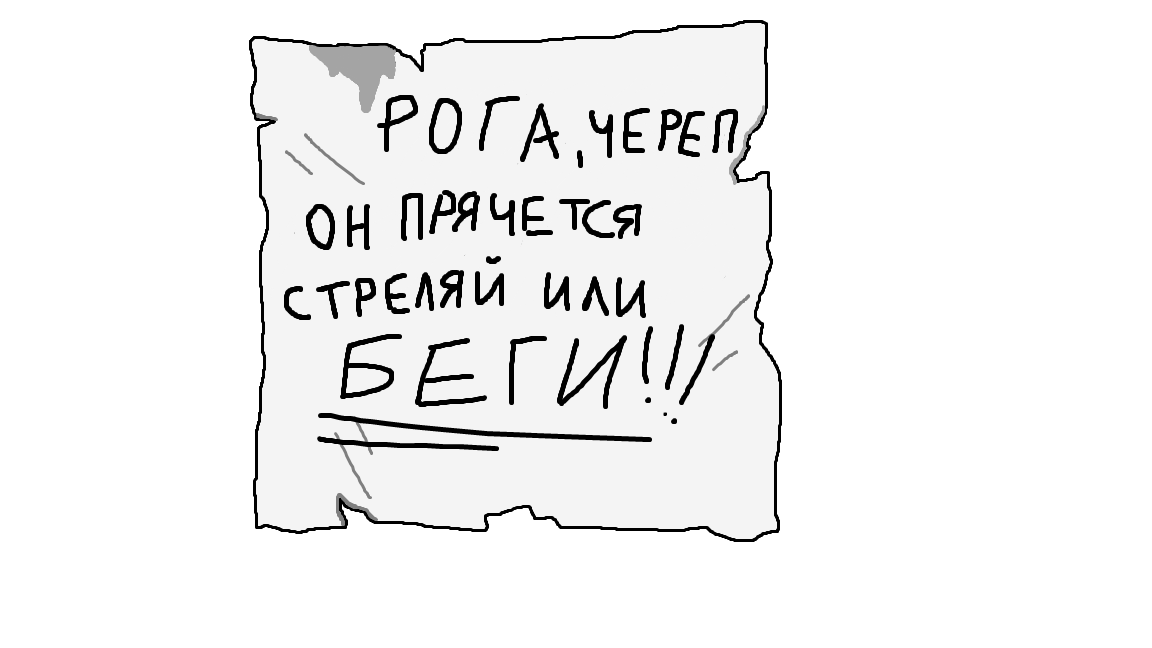 РОГА, ЧЕРЕП
ОН ПРЯЧЕТСЯ
СТРЕЛЯЙ ИЛИ
БЕГИ!!!